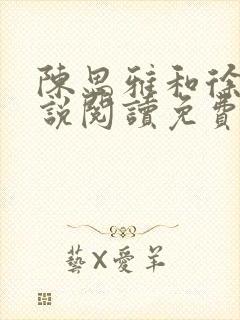 陳思雅和徐
說閱讀免費
藝X愛羊